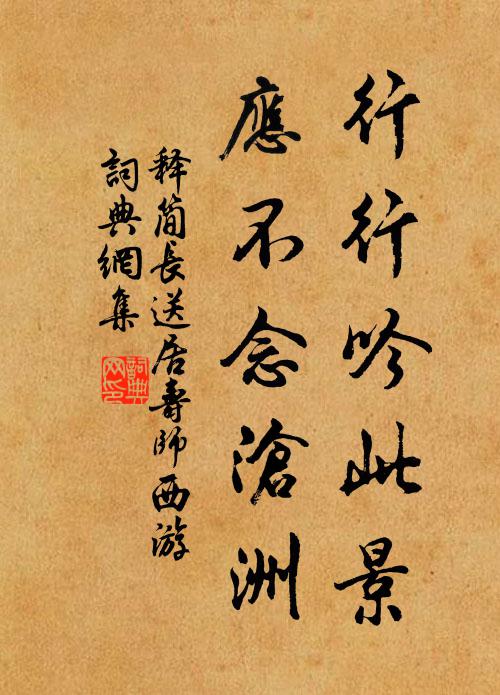 行行吟此景
應不念滄洲
释简長送居壽師西游
詞典網集
詞典
网印